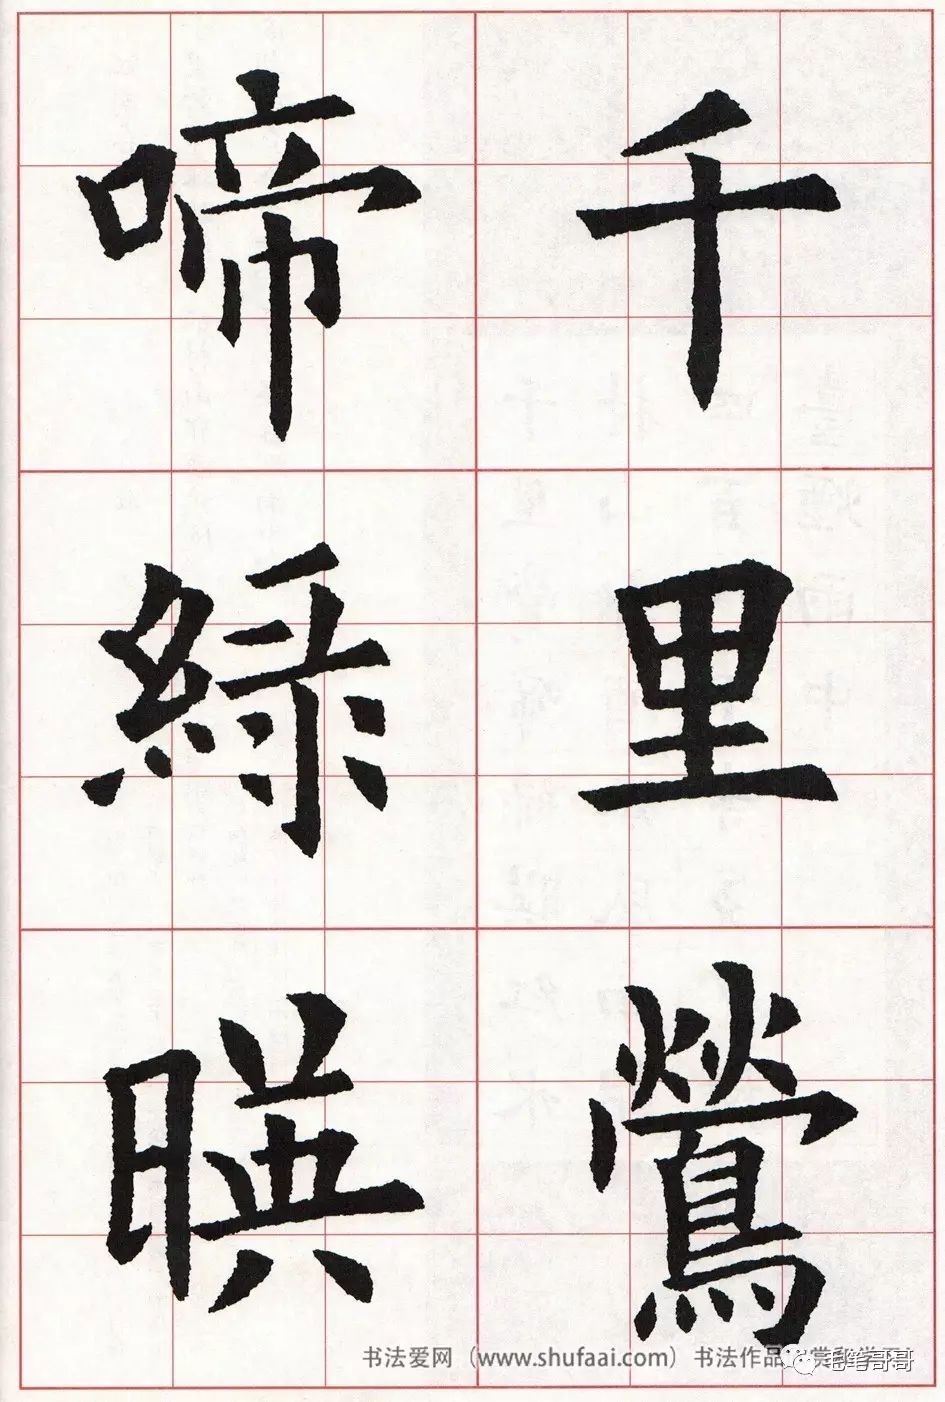 千里鶯
啼綠暎
书法爱网（www.shufaai.com）书法作品
毛笔哥哥